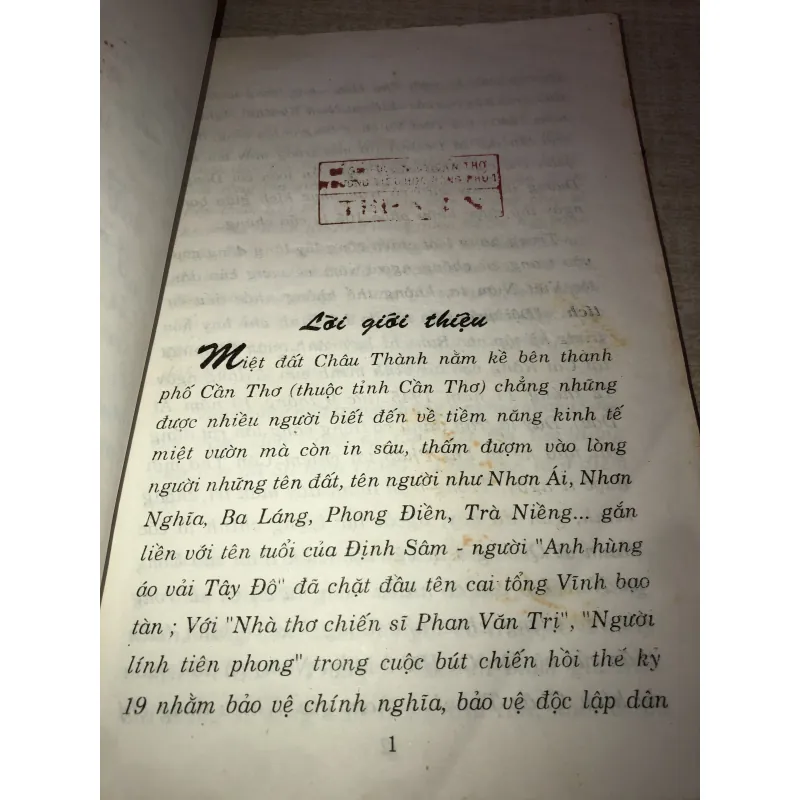 CẦN THƠ
THƯ VIỆN
Lời giới thiệu
Miệt đất Châu Thành nằm kề bên thành
phố Cần Thơ (thuộc tỉnh Cần Thơ) chẳng những
được nhiều người biết đến về tiềm năng kinh tế
miệt vườn mà còn in sâu, thấm đượm vào lòng
người những tên đất, tên người như Nhơn Ái, Nhơn
Nghĩa, Ba Láng, Phong Điền, Trà Niềng... gắn
liền với tên tuổi của Định Sâm - người "Anh hùng
áo vải Tây Đô" đã chặt đầu tên cai tổng Vĩnh bạo
tàn ; Với "Nhà thơ chiến sĩ Phan Văn Trị", "Người
lính tiên phong" trong cuộc bút chiến hồi thế kỷ
19 nhằm bảo vệ chính nghĩa, bảo vệ độc lập dân
1